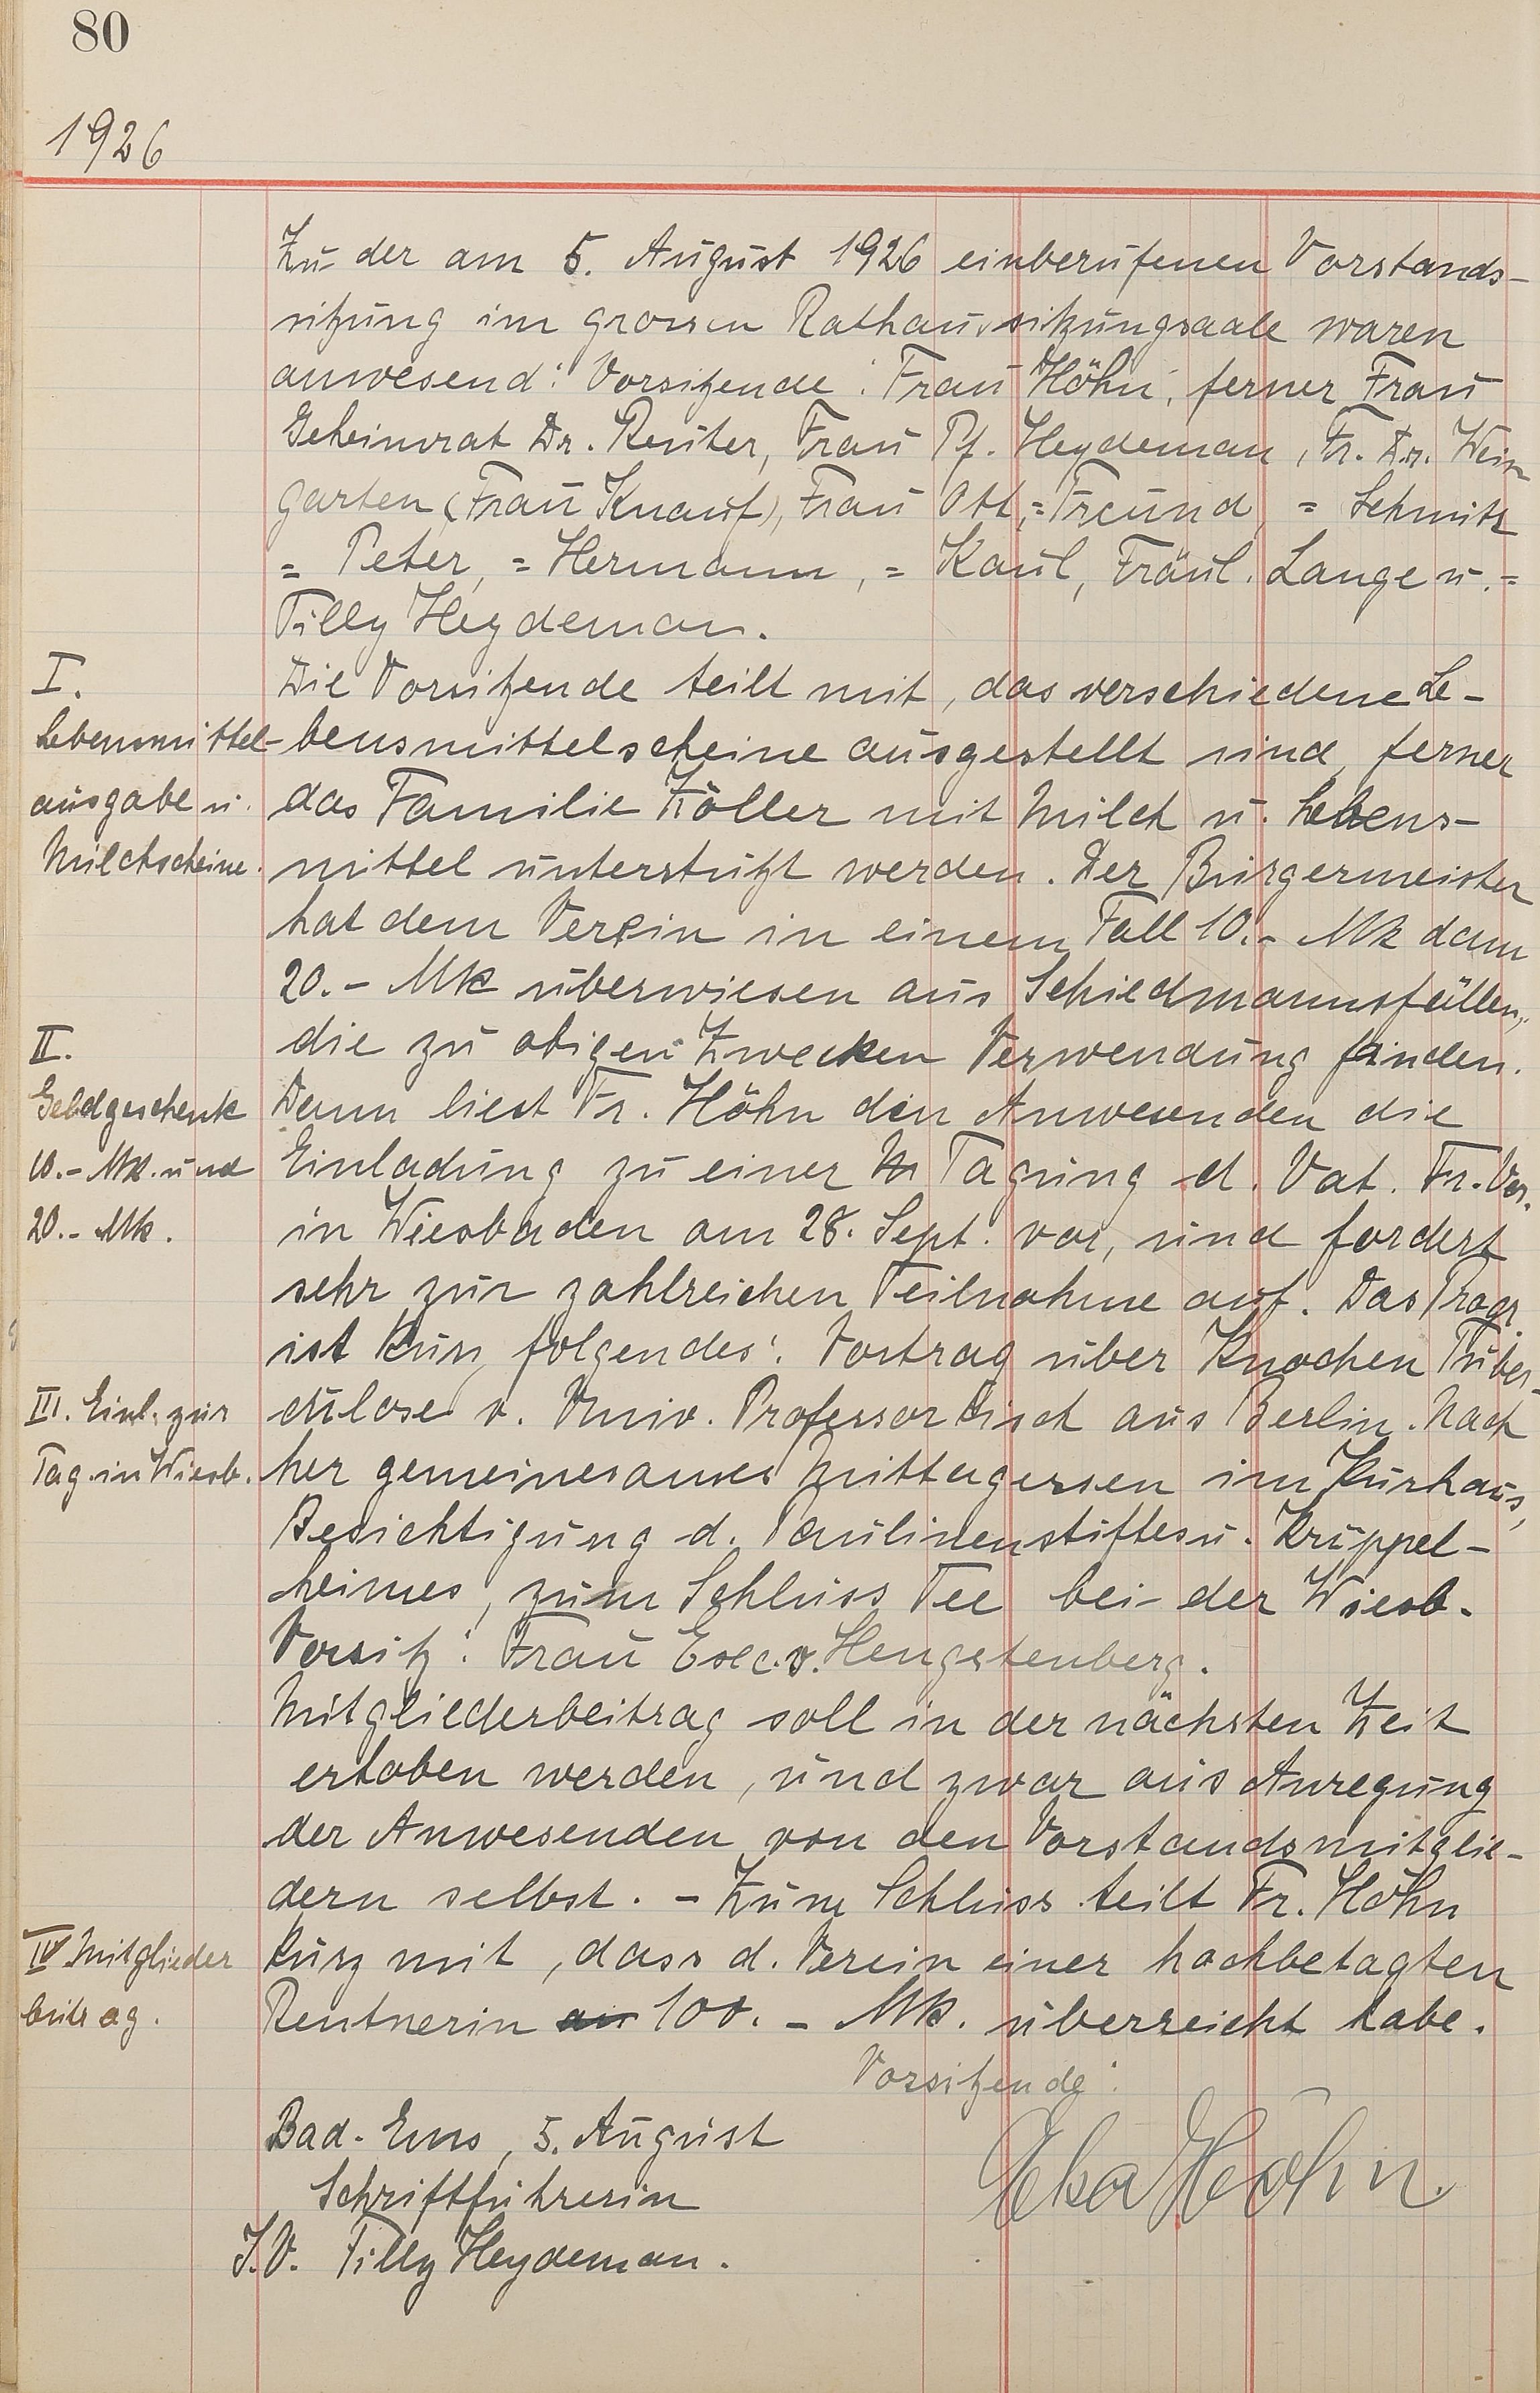 80
1926
Zu der am 5. August 1926 einberufenen Vorstands-
sitzung im grossen Rathaussitzungsaale waren
anwesend: Vorsitzende: Frau Höhn, ferner Frau
Geheimrat Dr. Reuter, Frau Pf. Heydeman, Fr. Dr. Wein
garten (Frau Knauf), Frau Ott, = Freund, = Schmitz
= Peter, = Hermann, = Kaul, Fräul. Lange u. =
Tilly Heydeman.
I.
Lebensmittel-
ausgabe u.
Milchscheine.
Die Vorsitzende teilt mit, das verschiedene Le-
bensmittelscheine ausgestellt sind, ferner
das Familie Zöller mit Milch u. Lebens-
mittel unterstützt werden. Der Bürgermeister
hat dem Verein in einem Fall 10.- Mk dann
20.- Mk überwiesen aus Schiedmannsfällen,
die zu obigen Zwecken Verwendung finden.
II.
Geldgeschenk
10.- Mk. und
20.- Mk.
Dann liest Fr. Höhn den Anwesenden die
Einladung zu einer Tagung d. Vat. Fr. Ver.
in Wiesbaden am 28. Sept. vor, und fordert
sehr zur zahlreichen Teilnahme auf. Das Progr.
ist kurz folgendes: Vortrag über Knochen Tuber-
III. Einl. zur
Tag. in Wiesb.
culose v. Univ. Professor aus Berlin. Nach
her gemeinesames Mittagessen im Kurhaus,
Besichtigung d. Paulinenstiftes u. Krüppel-
heimes, zum Schluss Tee bei der Wiesb.
Vorsitz: Frau Exc. v. Hengstenberg.
Mitgliederbeitrag soll in der nächsten Zeit
erhoben werden, und zwar aus Anregung
der Anwesenden von den Vorstandsmitglie-
dern selbst. - Zum Schluss teilt Fr. Höhn
IV Mitglieder
beitrag.
kurz mit, dass d. Verein einer hochbetagten
Rentnerin an 100.- Mk. überreicht habe.
Vorsitzende:
Bad-Ems, 5. August
Schriftführerin
Elsa Höhn.
I.V. Tilly Heydeman.